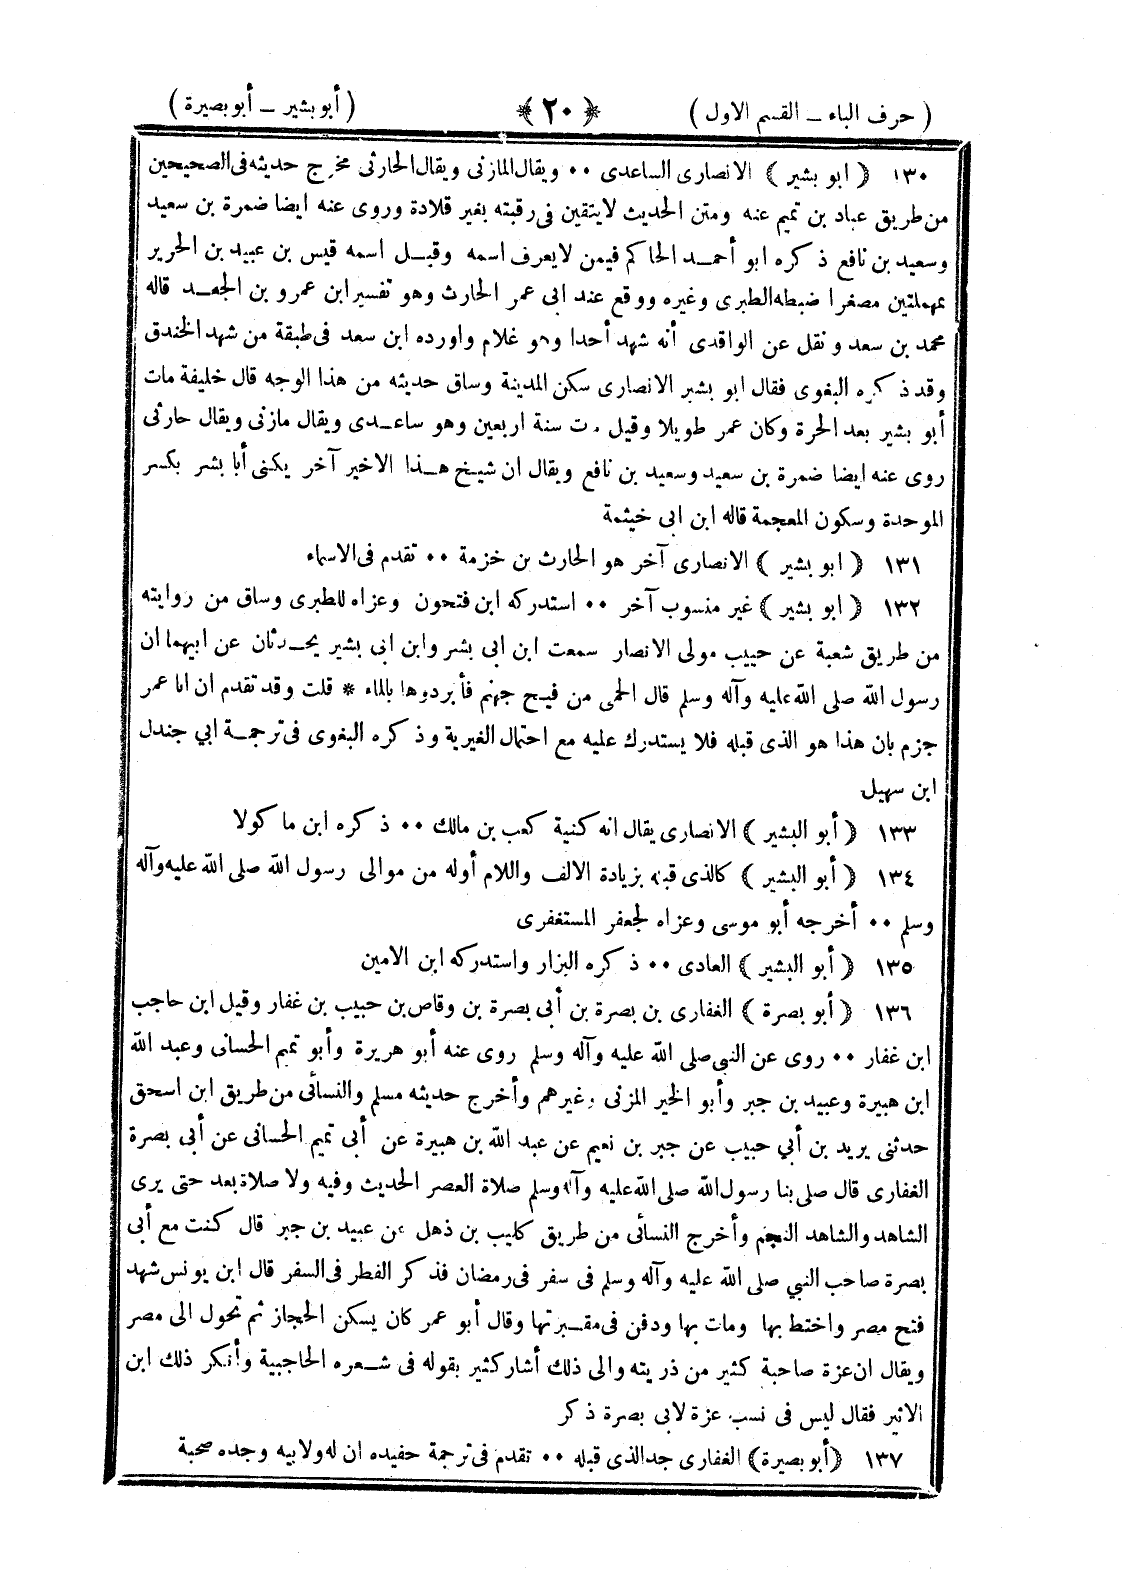 ( حرف الباء ــ القسم الاول ) ﴿ ٢٠ ﴾ ( أبو بشير ــ أبو بصيرة )
١٣٠ ﴿ ابو بشير ﴾ الانصارى الساعدى ٠٠ ويقال المازنى ويقال الحارثى مخرج حديثه فى الصحيحين
من طريق عباد بن تميم عنه ومتن الحديث لايتقين فى رقبته بغير قلادة وروى عنه ايضا ضمرة بن سعيد
وسعيد بن نافع ذكره ابو أحمد الحاكم فيمن لايعرف اسمه وقبل اسمه قيس بن عبيد بن الحرير
بمهملتين مصغرا ضبطه الطبرى وغيره ووقع عند ابى عمر الحارث وهو تفسير ابن عمرو بن الجعد قاله
محمد بن سعد ونقل عن الواقدى أنه شهد أحدا وهو غلام واورده ابن سعد فى طبقة من شهد الخندق
وقد ذكره البغوى فقال ابو بشير الانصارى سكن المدينة وساق حديثه من هذا الوجه قال خليفة مات
أبو بشير بعد الحرة وكان عمر طويلا وقيل مت سنة اربعين وهو ساعدى ويقال مازنى ويقال حارثى
روى عنه ايضا ضمرة بن سعيد وسعيد بن نافع ويقال ان شيخ هذا الاخير آخر يكنى أبا بشر بكسر
الموحدة وسكون المعجمة قاله ابن ابى خيثمة
١٣١ ﴿ ابو بشير ﴾ الانصارى آخر هو الحارث بن خزمة ٠٠ تقدم فى الاسماء
١٣٢ ﴿ ابو بشير ﴾ غير منسوب آخر ٠٠ استدركه ابن فتحون وعزاه للطبرى وساق من روايته
من طريق شعبة عن حبيب مولى الانصار سمعت ابن ابى بشر وابن ابى بشير يحدثان عن ابيهما ان
رسول الله صلى الله عليه وآله وسلم قال الحمى من فيح جهنم فأبردوها بالماء * قلت وقد تقدم ان ابا عمر
جزم بان هذا هو الذى قبله فلا يستدرك عليه مع احتمال الغيرية وذكره البغوى فى ترجمة ابي جندل
ابن سهيل
١٣٣ ﴿ أبو البشير ﴾ الانصارى يقال انه كنية كعب بن مالك ٠٠ ذكره ابن ماكولا
١٣٤ ﴿ أبو البشير ﴾ كالذى قبله بزيادة الالف واللام أوله من موالى رسول الله صلى الله عليه وآله
وسلم ٠٠ أخرجه أبو موسى وعزاه لجعفر المستغفرى
١٣٥ ﴿ أبو البشير ﴾ العادى ٠٠ ذكره البزار واستدركه ابن الامين
١٣٦ ﴿ أبو بصرة ﴾ الغفارى بن بصرة بن أبى بصرة بن وقاص بن حبيب بن غفار وقيل ابن حاجب
ابن غفار ٠٠ روى عن النبى صلى الله عليه وآله وسلم روى عنه أبو هريرة وأبو تميم الحسانى وعبد الله
ابن هبيرة وعبيد بن جبر وأبو الخير المزنى وغيرهم وأخرج حديثه مسلم والنسائى من طريق ابن اسحق
حدثنى يريد بن أبي حبيب عن جبر بن نعيم عن عبد الله بن هبيرة عن أبى تميم الحسانى عن أبى بصرة
الغفارى قال صلى بنا رسول الله صلى الله عليه وآله وسلم صلاة العصر الحديث وفيه ولا صلاة بعد حتى يرى
الشاهد والشاهد النجم وأخرج النسائى من طريق كليب بن ذهل عن عبيد بن جبر قال كنت مع أبى
بصرة صاحب النبي صلى الله عليه وآله وسلم فى سفر فى رمضان فذكر الفطر فى السفر قال ابن يونس شهد
فتح مصر واختط بها ومات بها ودفن فى مقبرتها وقال أبو عمر كان يسكن الحجاز ثم تحول الى مصر
ويقال ان عزة صاحبة كثير من ذريته والى ذلك أشار كثير بقوله فى شعره الحاجبية وأنكر ذلك ابن
الاثير فقال ليس فى نسب عزة لابى بصرة ذكر
١٣٧ ﴿أبو بصيرة﴾ الغفارى جد الذى قبله ٠٠ تقدم فى ترجمة حفيده ان له ولابيه وجده صحبة